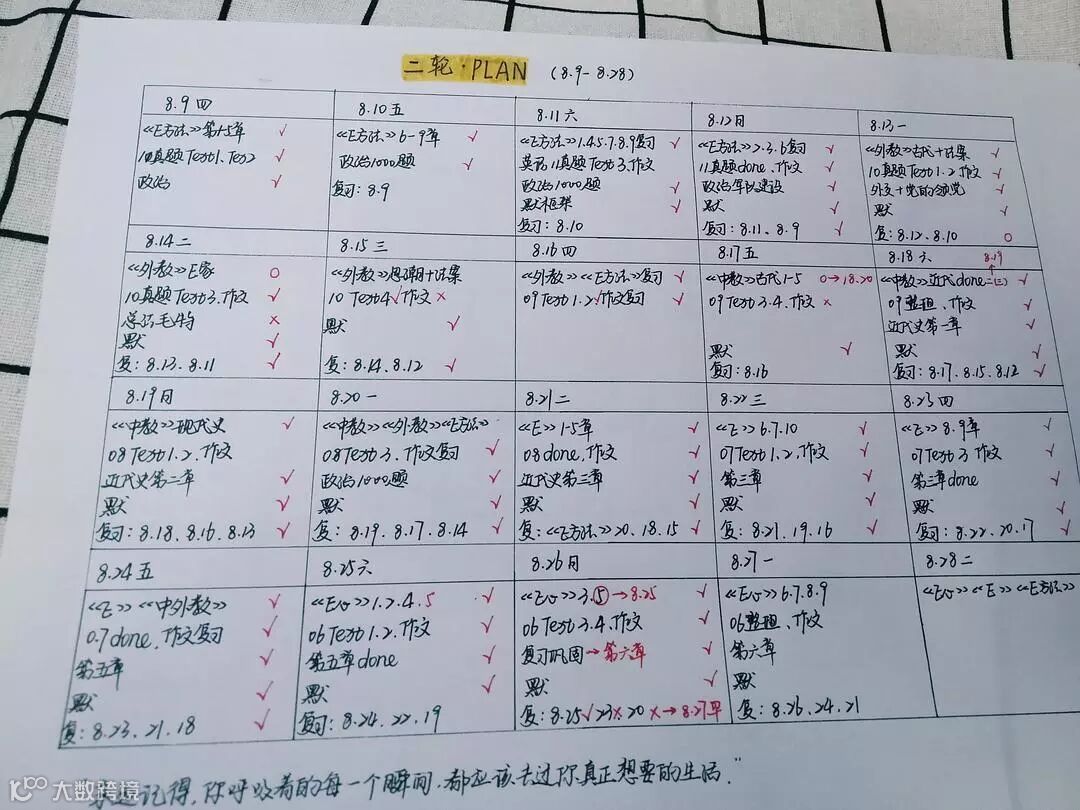 二轮·PLAN (8.9-8.28)
8.9 四
《E方法》第1-5章 √
10真题Test1、Test2 √
政治 √
8.10 五
《E方法》6-9章 √
政治1000题 √
复习:8.9
8.11 六
《E方法》1.4.5.7.8.9复习 √
英语11真题Test3.作文 √
政治1000题
默框架 √
复习:8.10
8.12 日
《E方法》2.3.6复习 √
11真题done、作文 √
政治军队建设 √
默 √
复习:8.11、8.9 √
8.13 一
《外教》古代+ √
10真题Test1.2.作文 √
外交+党的领党 √
默 √
复:8.12、8.10 O
8.14 二
《外教》E家 O
10真题Test3.作文 √
×
默 √
复:8.13、8.11 √
8.15 三
《外教》
10 Test4√作文×
默 √
复:8.14、8.12 √
8.16 四
《外教》《E方法》复习 √
09Test1.2√作文复习 √
8.17 五
《中教》古代1-5 O→18.20
09Test3.4.作文 ×
默 √
复习:8.16
8.18 六 8.19
《中教》近代done √
09整理、作文 √
近代史第一章
默 √
复习:8.17、8.15、8.12 √
8.19 日
《中教》现代史 √
08Test1.2、作文
近代史第二章 √
默 √
复习:8.18、8.16、8.13 √
8.20 一
《中教》《外教》《E方法》
08Test3、作文复习 √
政治1000题 √
默 √
复:8.19、8.17、8.14 √
8.21 二
《E》1-5章 √
08done、作文 √
近代史第三章 √
默 √
复:《E方法》20、18、15 √
8.22 三
《E》6.7.10 √
07Test1.2、作文 √
第三章 √
默 √
复:8.21、19、16 √
8.23 四
《E》8.9章 √
07Test3 作文 √
第三章done √
默 √
复习:8.22、20、17 √
8.24 五
《E》《中外教》 √
0.7done、作文复习 √
第五章 √
默 √
复:8.23、21、18 √
8.25 六
1.2.4.5 √
06Test1.2、作文 √
第五章done √
默 √
复习:8.24、22、19
8.26 日
3.⑤→8.25 √
06Test3.4、作文 √
复习巩固→第六章 √
默 √
复:8.25√23×20×→8.27早
8.27 一
6.7.8.9
06整理、作文
第六章
默
复:8.26、24、21
8.28 二
《E》《E方法》
记得,你呼吸着的每一个瞬间,都应该去过你真正想要的生活。"
大数跨境